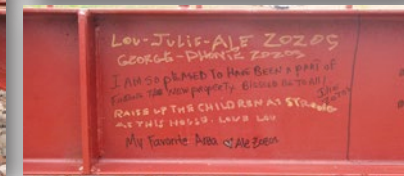 LOU-JULIE-ALE ZOZOS
GEORGE-DHONIE ZOZOS
I AM SO PLEASED TO HAVE BEEN A PART OF
THE NEW PROPERTY. BLESSED BETHANY.
Julie
Zozos
RAISE UP THE CHILDREN AS STRONG
AS THIS WORLD. LOVE LOU
My Favorite Area Ale Zozos